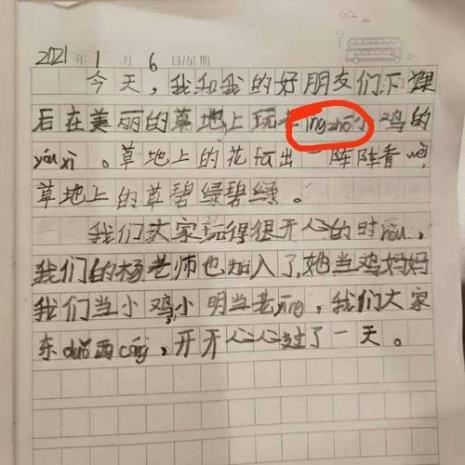 2021年1月6日/星期
今天,我和我的好朋友们下课
后在美丽的草地上玩老ingzhō小鸡的
yóuxì。草地上的花坛出一阵阵香
草地上的草碧绿碧绿。
我们大家玩得很开心的时hou,
我们的杨老师也加入了,她当鸡妈妈
我们当小鸡,小明当老yīng,我们大家
东duǒ西cáng,开开心心过了一天。